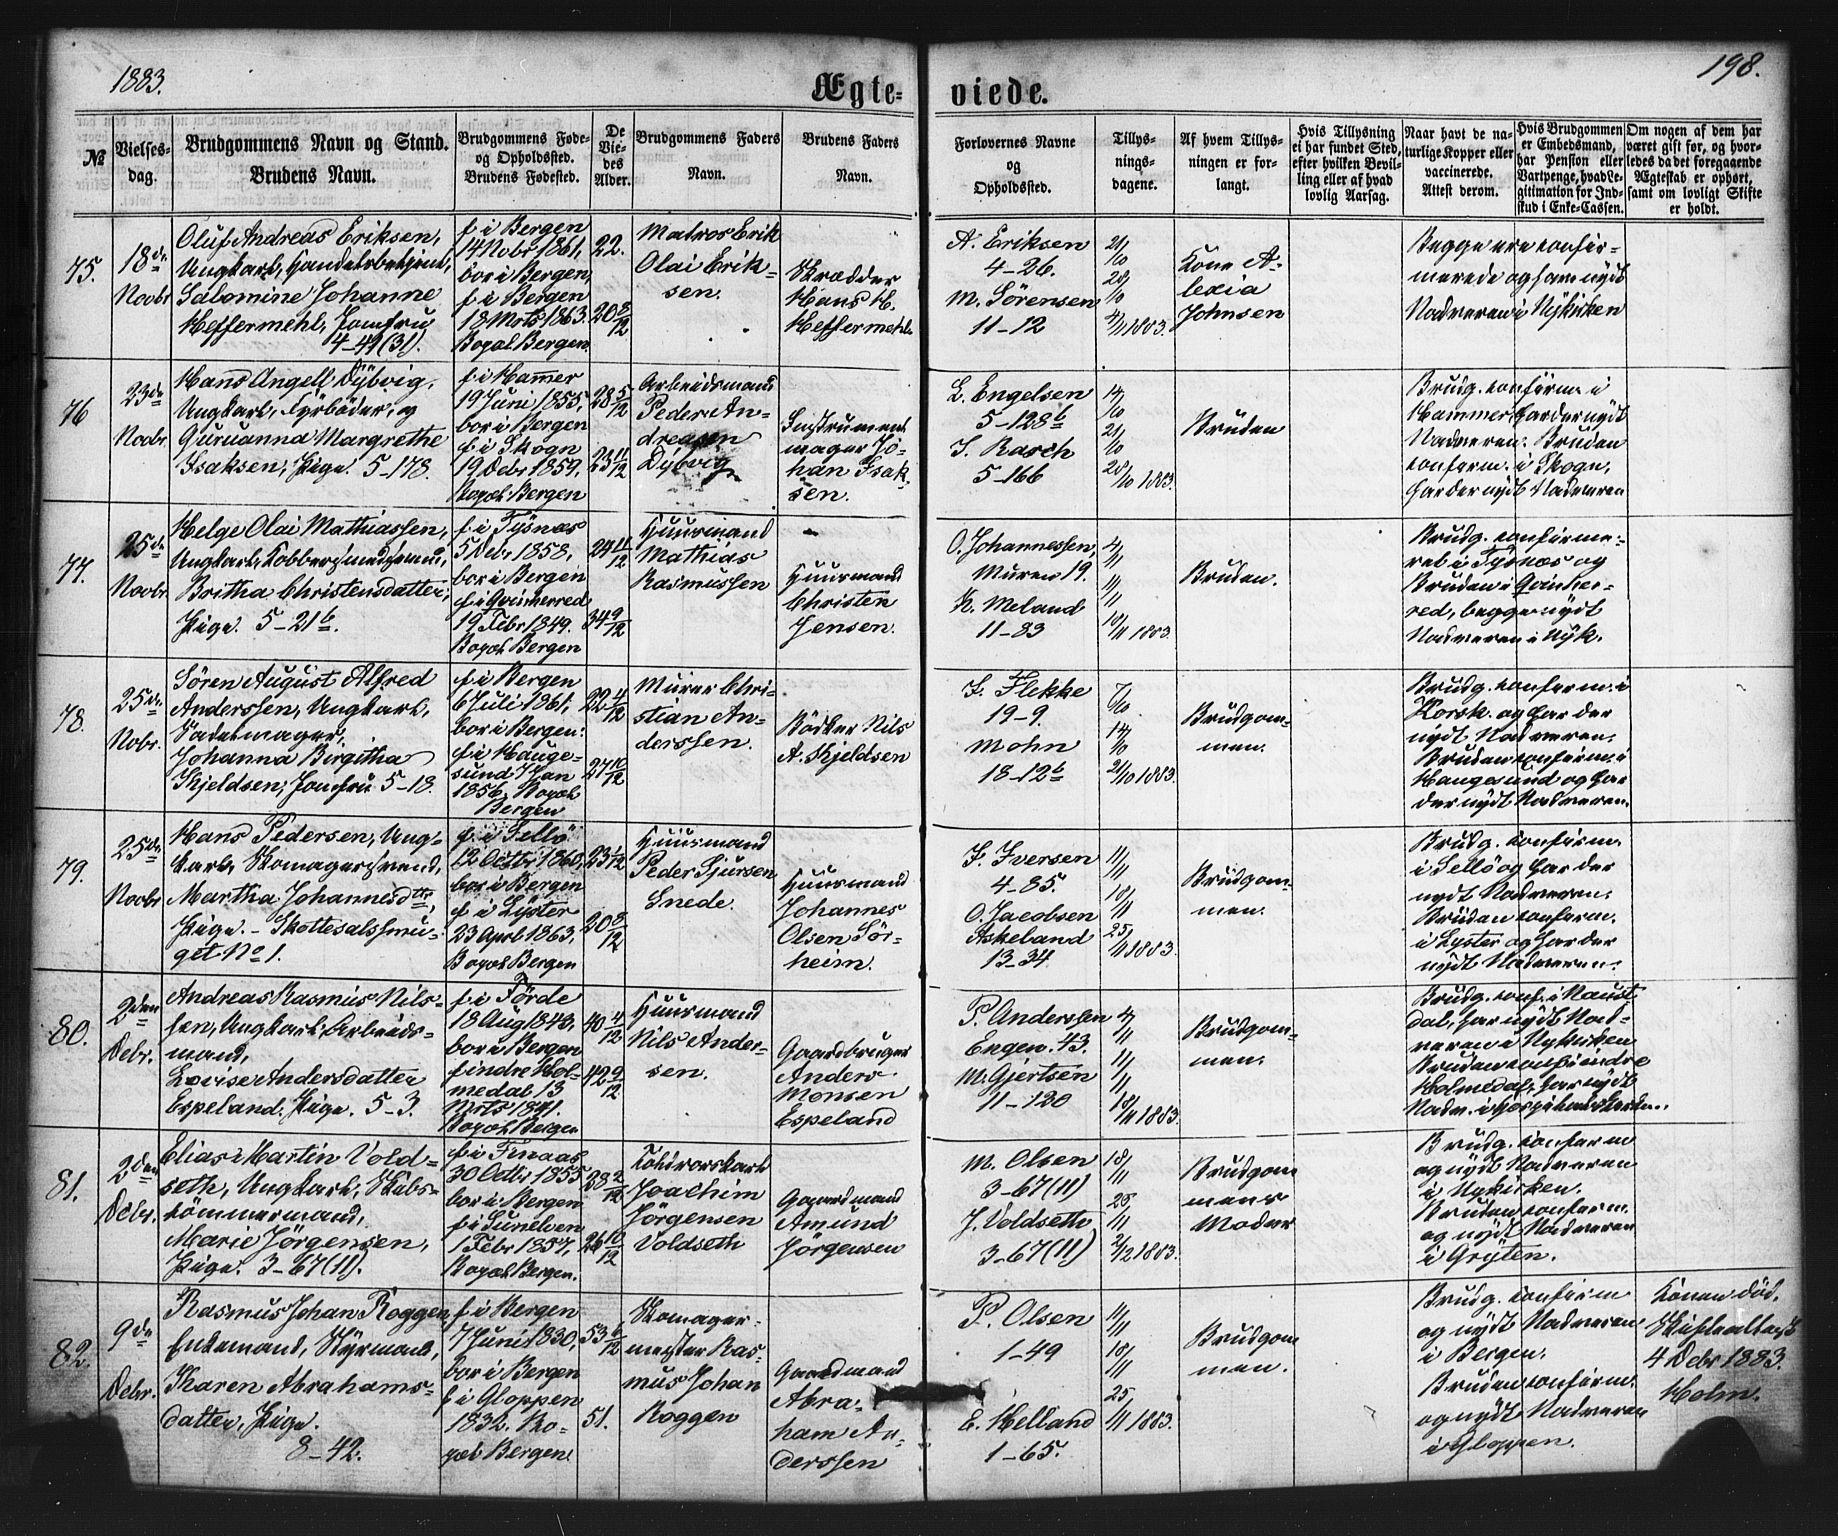 1883.
198.
Ægte-
viede.
№
Vielses-
dag.
Brudgommens Navn og Stand.
Brudens Navn.
Brudgommens Føde-
og Opholdssted.
Brudens Fødested.
De
Vie-
des
Alder.
Brudgommens Faders
Navn.
Brudens Faders
Navn.
Forlovernes Navne
og
Opholdssted.
Tillys-
nings-
dagene.
Af hvem Tillys-
ningen er for-
langt.
Hvis Tillysning
ei har fundet Sted,
efter hvilken Bevil-
ling eller af hvad
lovlig Aarsag.
Naar havt de na-
turlige Kopper eller
vaccinerede.
Attest derom.
Hvis Brudgommen
er Embedsmand,
har Pension eller
Vartpenge, hvad Le-
gitimation for Ind-
skud i Enke-Cassen.
Om nogen af dem har
været gift for, og hvor-
ledes da det foregaaende
Ægteskab er ophørt,
samt om lovligt Skifte
er holdt.
75.
18de
Novbr
Oluf Andreas Eriksen,
Ungkarl, Handelsbetjent,
Salomine Johanne
Heffermehl, Jomfru
4-49(31).
f i Bergen
14 Nobr 1861,
bor i Bergen,
f i Bergen
18 Mrts 1863.
Bopæl Bergen.
22.
20 8/12
Matros Erik
Olai Erik-
sen.
Skrædder
Hans H.
Heffermehl.
A. Eriksen
4-26.
M. Sørensen
11-12
21/10
28/10
4/11 1883.
Kone A-
lexia
Johnsen
Begge ere confir-
merede og have nydt
Nadveren i Nykirken
76
23de
Novbr.
Hans Angell Dybvig,
Ungkarl, Fyrbøder, og
Guruanna Margrethe
Isaksen, Pige. 5-178.
f i Hammer
19 Juni 1855,
bor i Bergen
f i Skogn
19 Debr 1859,
Bopæl Bergen
28 5/12
23 11/12
Arbeidsmand
Peder An-
dreasen
Dybvig
Instrument
mager Jo-
han Isak-
sen.
L. Engelsen
5-128b
I. Rasch
5-166
14/10
21/10
28/10 1883.
Bruden
Brudg. confirm. i
Hammer, har der nydt
Nadveren. Bruden
confirm. i Skogn,
har der nydt Nadveren
77.
25de
Novbr
Helge Olai Mathiassen,
Ungkarl, Kobbersmedsvend,
Britha Christensdatter,
Pige. 5-21b.
f i Tysnæs
5 Debr 1858,
bor i Bergen
f i Qvinherred
19 Febr 1849.
Bopæl Bergen
24 11/12
34 9/12
Huusmand
Mathias
Rasmussen
Huusmand
Christen
Jensen.
O. Johannessen,
Muren 19.
K. Meland
11-83
4/11
11/11
18/11 1883.
Bruden.
Brudg. confirme-
ret i Tysnæs og
Bruden i Qvinher-
red, begge nydt
Nadveren i Nyk.
78.
25de
Nobr.
Søren August Alfred
Anderssen, Ungkarl,
Sadelmager,
Johanna Birgitha
Kjeldsen, Jomfru 5-18.
f i Bergen
6 Juli 1861,
bor i Bergen.
f i Hauge-
sund 7 Jan
1856. Bopæl
Bergen
22 4/12
27 10/12
Murer Chri-
stian An-
derssen.
Bødker Nils
A. Kjeldsen
I. Flekke
19-9.
Mohn
18-12b
7/10
14/10
21/10 1883.
Brudgom-
men.
Brudg. confirm. i
Korsk. og har der
nydt Nadveren.
Bruden confirm. i
Haugesund og har
der nydt Nadveren.
79.
25de
Novbr
Hans Pedersen, Ung-
karl, Skomagersvend,
Martha Johannesdtr,
Pige. - Skottesalssmu-
get No 1.
f i Sellø
12 Octbr 1860,
bor i Bergen
f i Lyster
23 Aprl 1863,
Bopæl Bergen
23 1/12
20 8/12
Huusmand
Peder Sjursen
Snede.
Huusmand
Johannes
Olsen Sør-
heim.
I. Iversen
4-85.
O. Jacobsen
Askeland
13-34
11/11
18/11
25/11 1883.
Brudgom-
men.
Brudg. confirm.
i Sellø og har der
nydt Nadveren.
Bruden confirm.
i Lyster og har der
nydt Nadveren.
80.
2den
Debr.
Andreas Rasmus Nils-
sen, Ungkarl, Arbeids-
mand,
Lovise Andersdatter
Espeland, Pige. 5-3.
f i Førde
18 Aug 1843,
bor i Bergen
f indre Hol-
medal 13
Mrts 1841.
Bopæl Bergen
40 4/12
42 9/12
Huusmand
Nils Ander-
sen.
Gaardbruger
Anders
Monsen
Espeland
P. Anderssen
Engen. 43.
M. Gjertsen
11-120
4/11
11/11
18/11 1883.
Brudgom-
men.
Brudg. conf. i Naust
dal, har nydt Nad-
veren i Nykirken
Bruden conf i indre
Holmedal, har nydt
Nadv. i Hospitalskirken.
81.
2den
Debr.
Elias Martin Vold-
seth, Ungkarl, Skibs-
tømmermand,
Marie Jørgensen,
Pige. 3-67(11).
30 Octbr 1855
bor i Bergen
f i Sunelven
1 Febr 1857,
Bopæl Bergen.
28 2/12
26 10/12
Joachim
Jørgensen
Voldseth
Gaardmand
Amund
Jørgensen
M. Olsen
3-67(11)
J. Voldseth
3-67(11)
18/11
25/11
2/12 1883.
Brudgom
mens
Moder
Brudg. confirm
og nydt Nadveren
i Nykirken.
Bruden confirm.
og nydt Nadveren
i Gryten.
82.
9de
Debr.
Rasmus Johan Roggen,
Enkemand, Styrmand,
Karen Abrahams-
datter, Pige.
8-42.
f i Bergen
7 Juni 1830,
bor i Bergen
f i Gloppen
1832. Bo-
pæl Bergen.
53 6/12
51.
Skomager-
mester Ras-
mus Johan
Roggen
Gaardmand
Abra-
ham An-
derssen
P. Olsen
1-49
E. Helland
1-65.
11/11
18/11
25/11 1883.
Brudgom
men.
Brudg. confirm
og nydt Nadveren
i Bergen.
Bruden confirm.
og nydt Nadveren
i Gloppen.
Konen død.
Skifteattest
4 Debr 1883.
Holm.